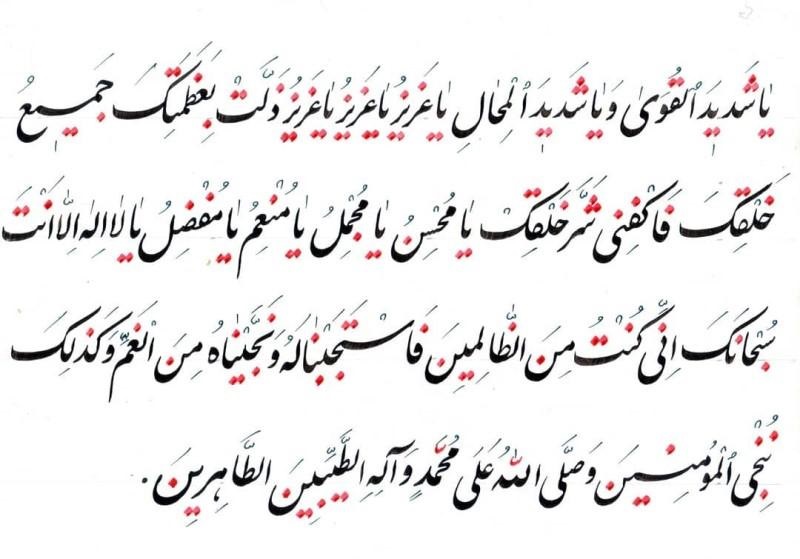 یٰا شَدیٖدَ الْقُوَىٰ وَیٰا شَدیٖدَ الْمِحٰالِ یٰا عَزیٖزُ یٰا عَزیٖزُ یٰا عَزیٖزُ ذَلَّتْ بِعَظَمَتِکَ جَمیٖعُ
خَلْقِکَ فَاکْفِنی شَرَّ خَلْقِکَ یٰا مُحْسِنُ یٰا مُجْمِلُ یٰا مُنْعِمُ یٰا مُفْضِلُ یٰا لٰا اِلٰهَ اِلّٰا اَنْتَ
سُبْحٰانَکَ اِنّی کُنْتُ مِنَ الظّٰالِمینَ فَاسْتَجَبْنٰا لَهُ وَنَجَّیْنٰاهُ مِنَ الْغَمِّ وَکَذٰلِکَ
نُنْجِی الْمُؤمِنینَ وَصَلَّی اللّٰهُ عَلَی مُحَمَّدٍ وَآلِهِ الطَّیِّبینَ الطَّاهِرینَ .